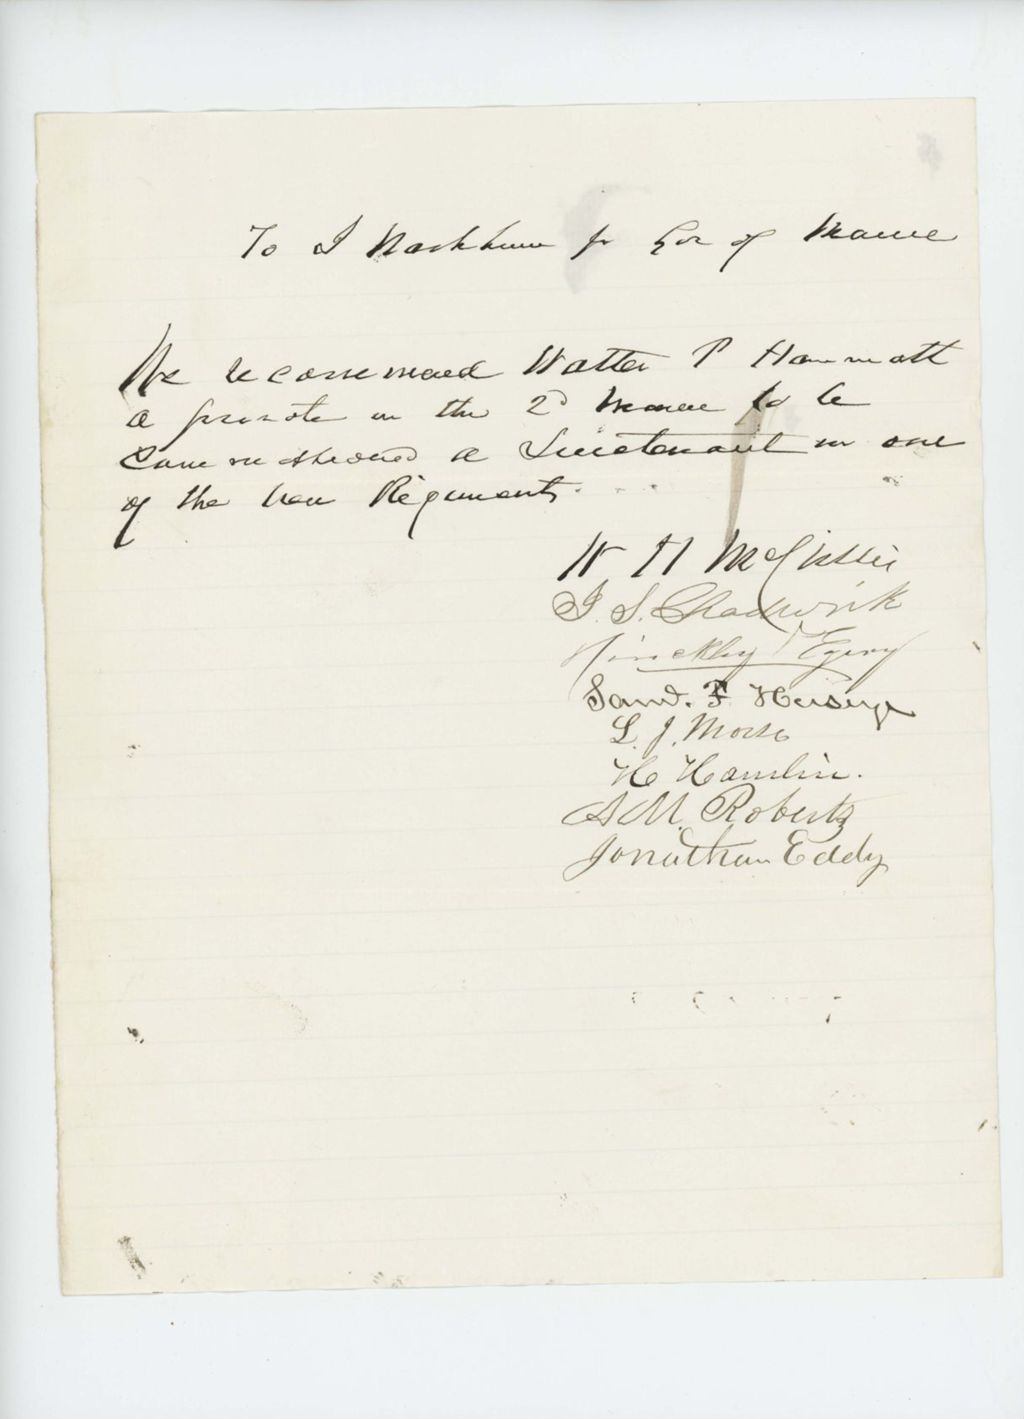 To I Washburn jr Gov of Maine
We recommend Walter P Hammatt
a private in the 2d Maine to be
Commissioned a Lieutenant in one
of the new Regiments.
W H McCrillis
J. S. Chadwick
Hinckley & Egery
Saml. F. Hersey
L. J. Morse
H Hamlin.
A M. Roberts
Jonathan Eddy